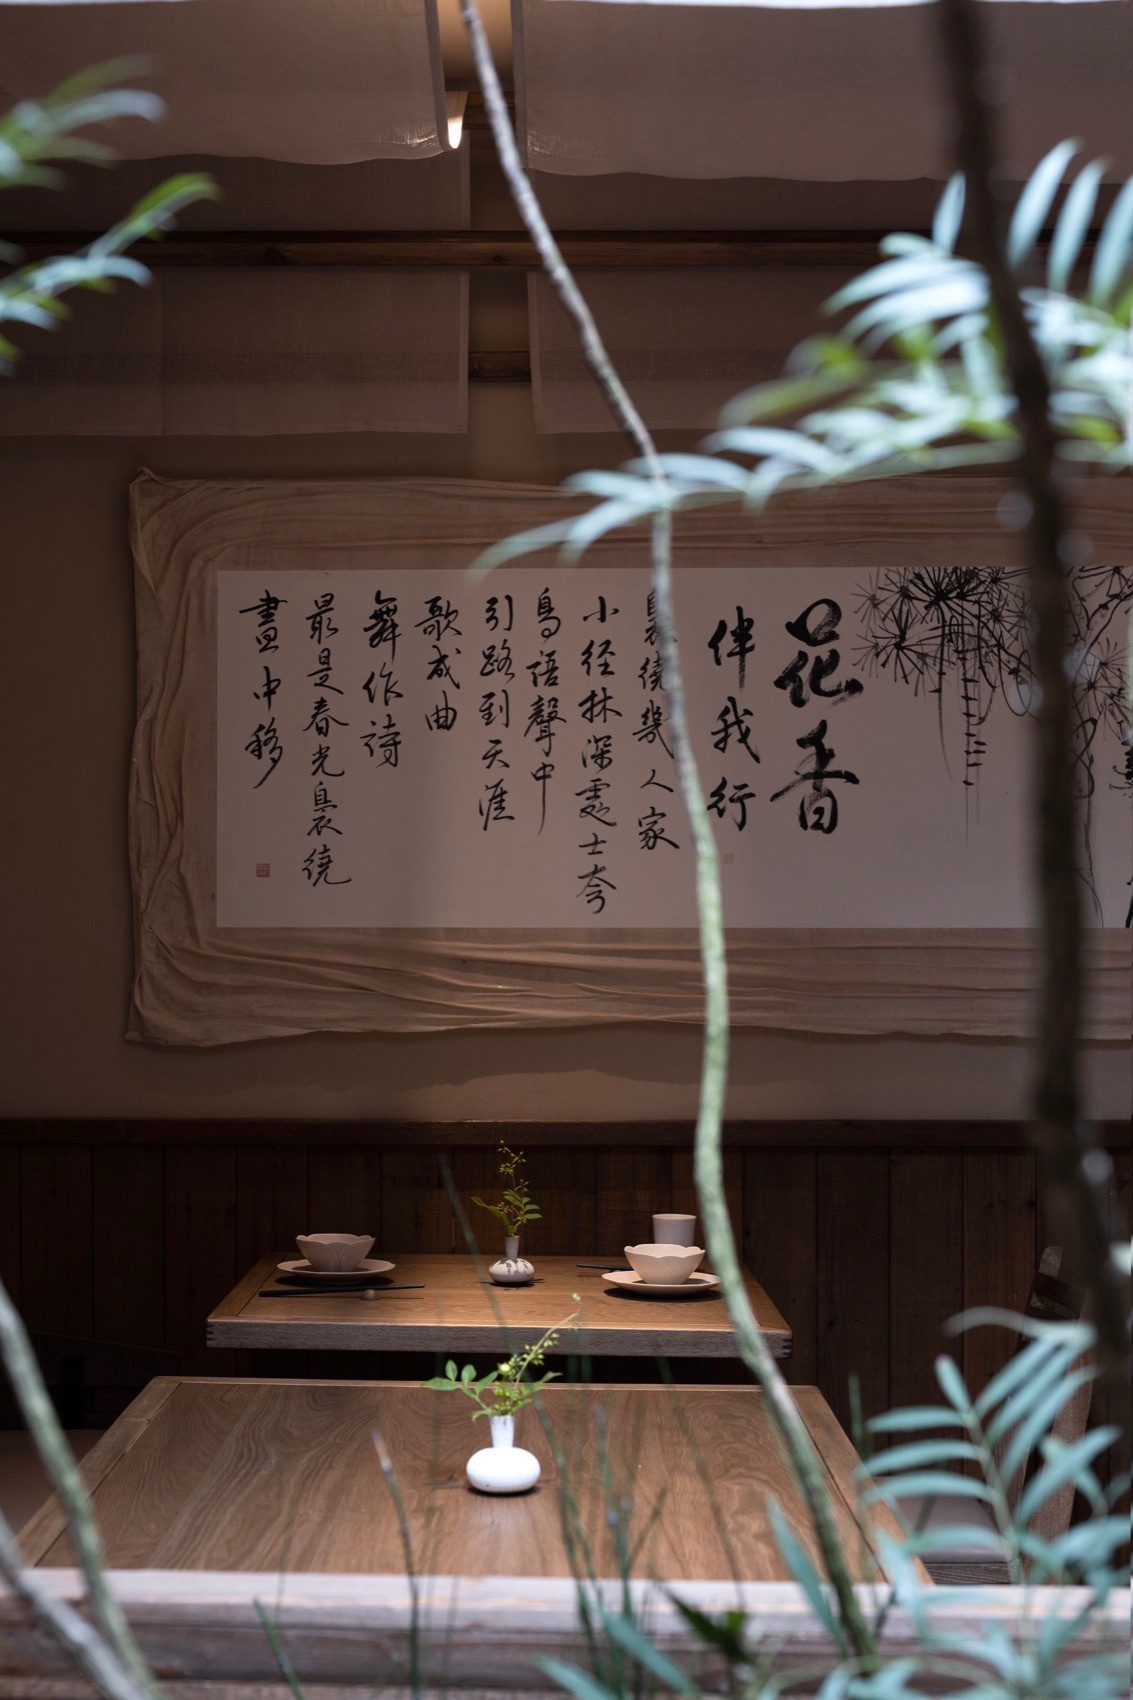 花香
伴我行
裊繞幾人家
小径林深處士夸
鳥語聲中
引路到天涯
歌成曲
舞作詩
最是春光裊繞
畫中移